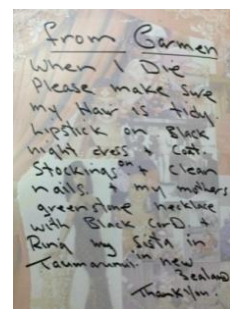 from Carmen
When I Die
Please make sure
my Hair is tidy.
Lipstick on Black
night dress + Coat.
Stockings on + Clean
nails. + my mothers
greenstone necklace
with Black CorD. +
Ring my Sista in
Taumarunui. in new
Zealand
Thank You.